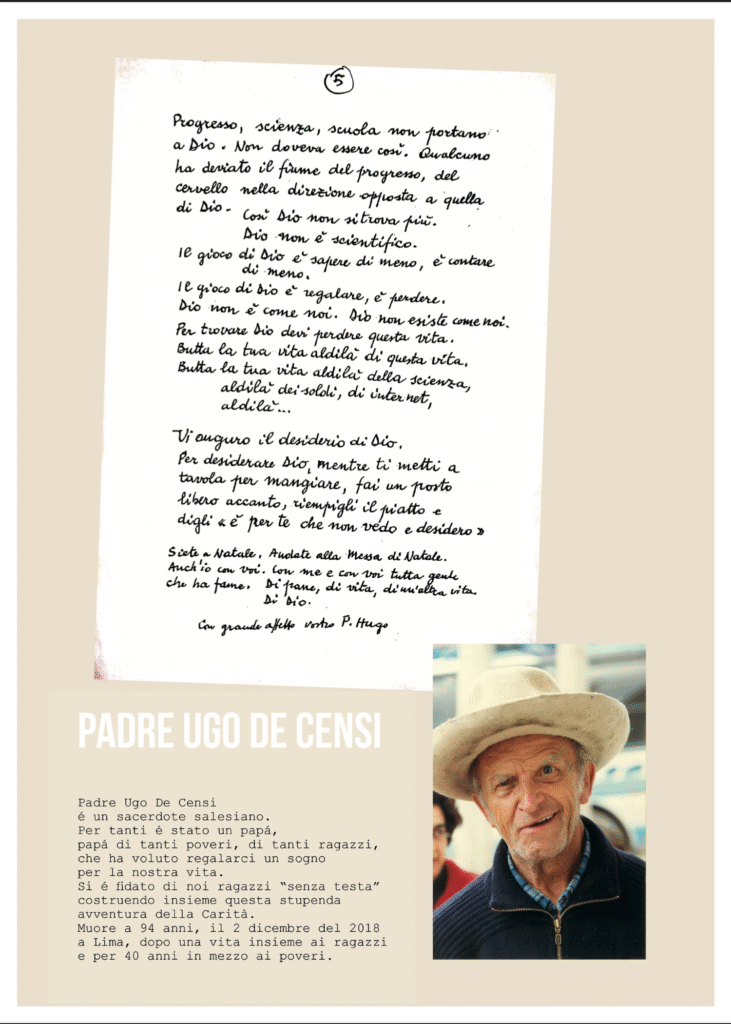 5
Progresso, scienza, scuola non portano
a Dio. Non doveva essere così. Qualcuno
ha deviato il fiume del progresso, del
cervello nella direzione opposta a quella
di Dio. Così Dio non si trova più.
Dio non è scientifico.
Il gioco di Dio è sapere di meno, è contare
di meno.
Il gioco di Dio è regalare, è perdere.
Dio non è come noi. Dio non esiste come noi.
Per trovare Dio devi perdere questa vita.
Butta la tua vita aldilà di questa vita.
Butta la tua vita aldilà della scienza,
aldilà dei soldi, di internet,
aldilà...
Vi auguro il desiderio di Dio.
Per desiderare Dio, mentre ti metti a
tavola per mangiare, fai un posto
libero accanto, riempigli il piatto e
digli « è per te che non vedo e desidero »
Siete a Natale. Andate alla Messa di Natale.
Anch'io con voi. Con me e con voi tutta gente
che ha fame. Di pane, di vita, di un'altra vita.
Di Dio.
Con grande affetto vostro P. Hugo
PADRE UGO DE CENSI
Padre Ugo De Censi
é un sacerdote salesiano.
Per tanti é stato un papá,
papá di tanti poveri, di tanti ragazzi,
che ha voluto regalarci un sogno
per la nostra vita.
Si é fidato di noi ragazzi “senza testa”
costruendo insieme questa stupenda
avventura della Carità.
Muore a 94 anni, il 2 dicembre del 2018
a Lima, dopo una vita insieme ai ragazzi
e per 40 anni in mezzo ai poveri.